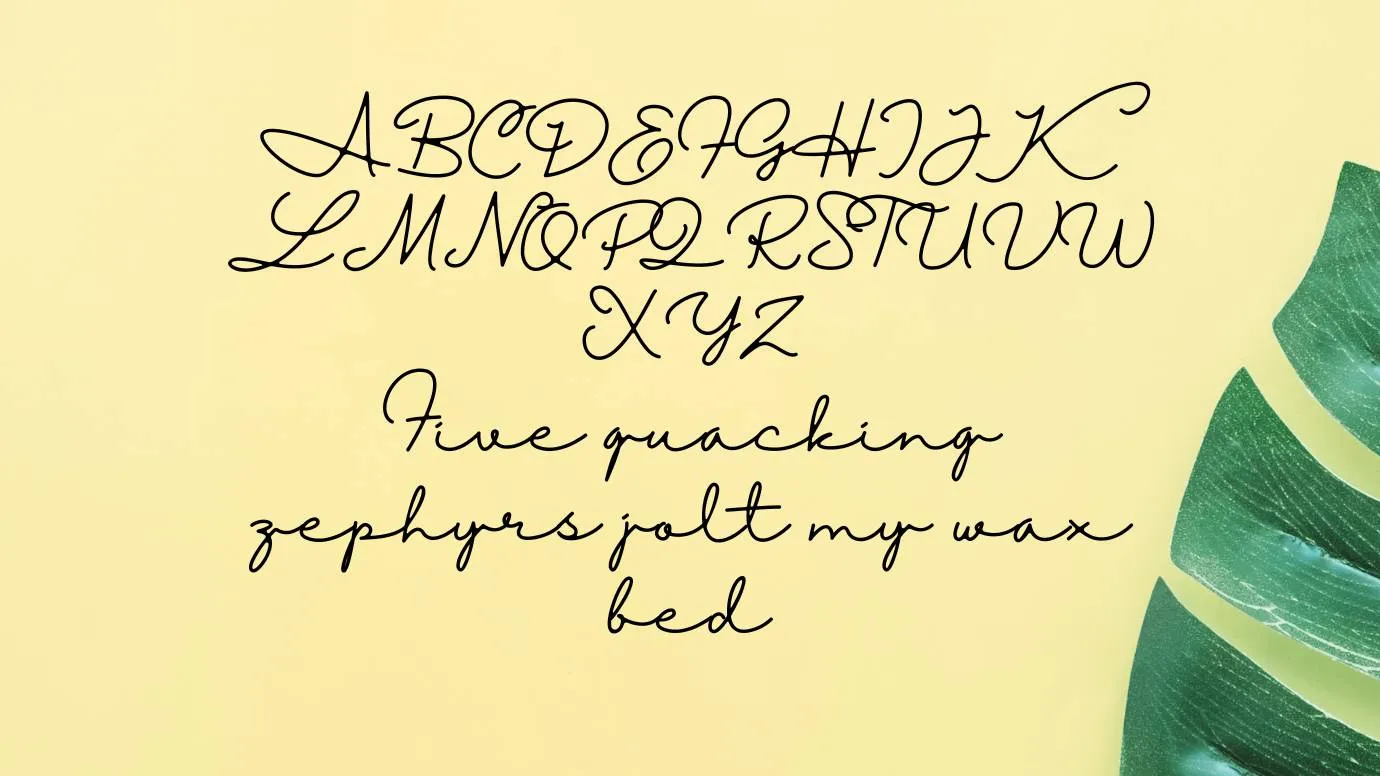 ABCDEFGHIJK
LMNOPQRSTUVW
XYZ
Five quacking
zephyrs jolt my wax
bed